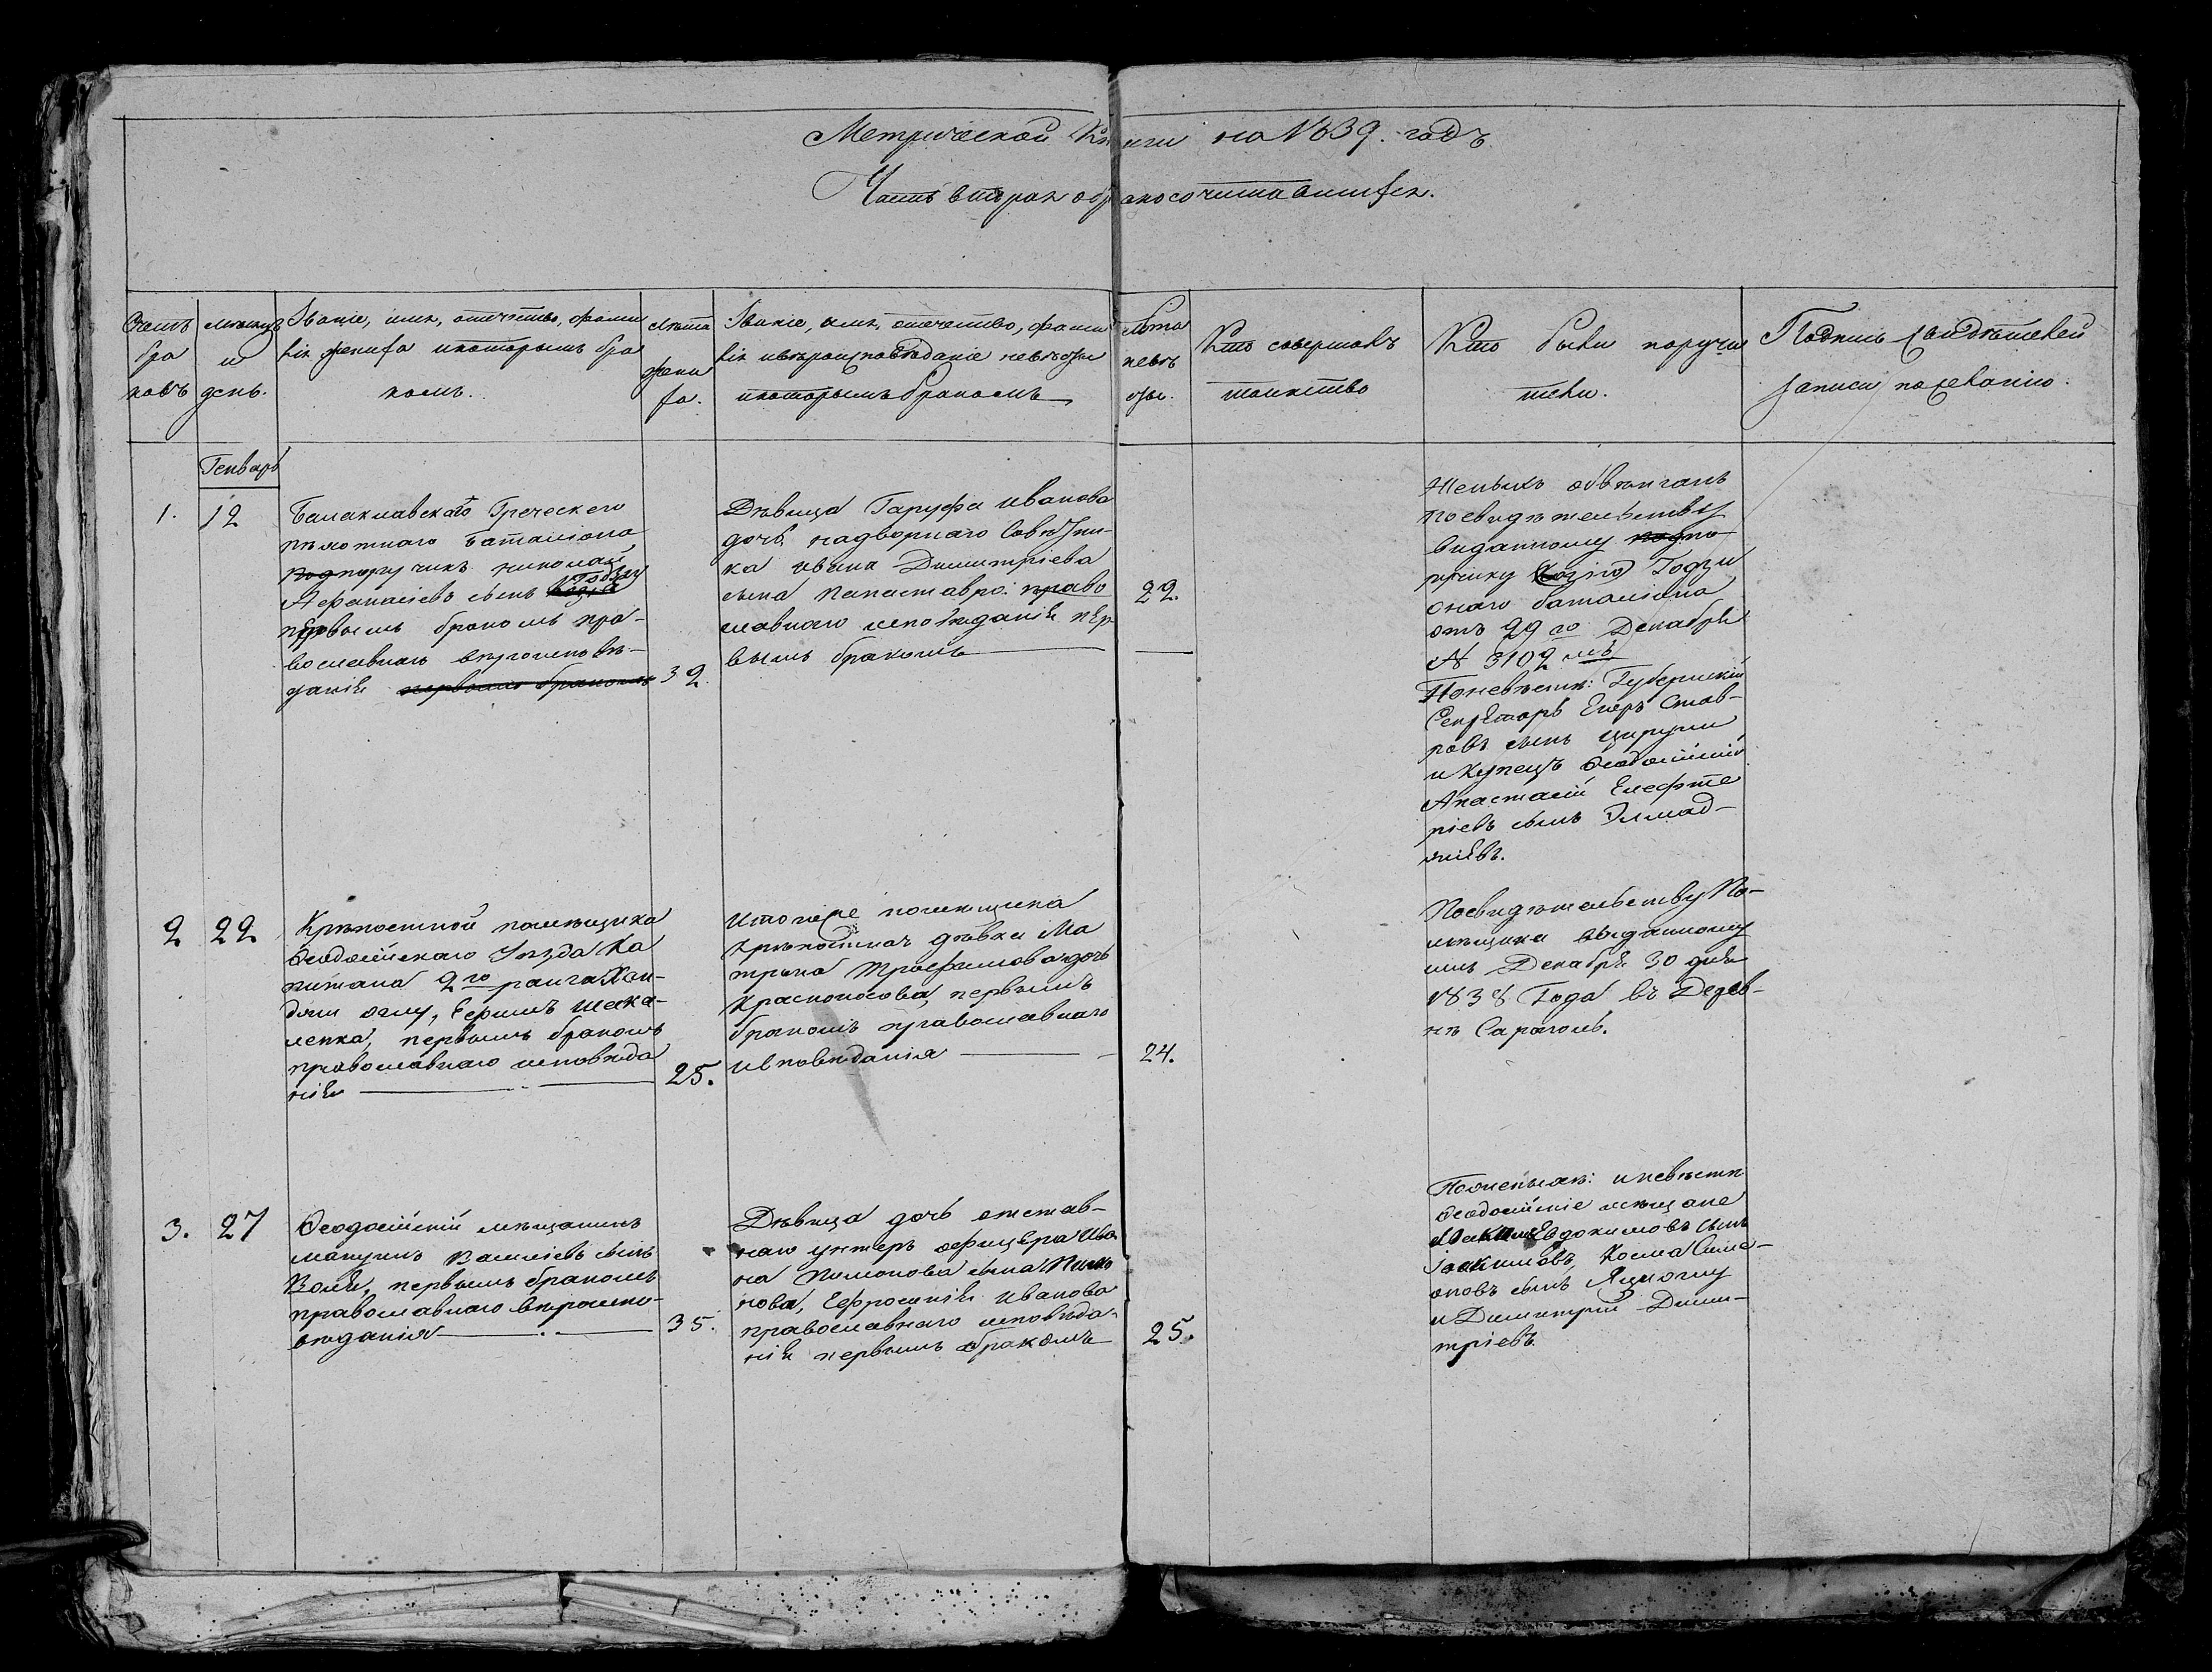 Метрической Книги на 1839. годъ
Часть вторая о бракосочитавшихся.
Счетъ браковъ
Месяцъ и день.
Званіе, имя, отечество, фами
лія жениха и которымъ бра
комъ.
Лѣта
жени
ха.
Званіе, имя, отечество, фами
лія и вѣроисповѣданіе невѣсты
и которымъ бракомъ
Лѣта
невѣ
сты.
Кто совершалъ
таинство
Кто были поручи
тели.
Подпись свидѣтелей
записи по желанію.
Генварь
1.
12
Балаклавскаго Греческаго
пѣхотнаго баталіона
подпоручикъ николай
Афанасіевъ сынъ
первымъ бракомъ пра-
вославнаго вѣроисповѣ-
данія первымъ бракомъ
32.
Дѣвица Гаруфа Иванова
дочь надворнаго Совѣтни-
ка Ивана Димитріева
сына Папаставро: право
славнаго исповѣданія пер
вымъ бракомъ
22.
Женихъ обвѣнчанъ
по свидѣтельству
виданному подпо
ручику Годзи
онаго баталіона
отъ 29го Декабря
№ 3102мъ
По невѣстѣ: Губернскій
Секретарь Егоръ Став-
ровъ сынъ Цирули
и Купецъ Феодосійскій
Анастасій Елефте
ріевъ сынъ
2
22
Крѣпостной помѣщика
Феодосійскаго Уѣзда Ка
питана 2го ранга
Ефимъ
первымъ бракомъ
православнаго исповѣда
нія
25.
И того же помѣщика
крѣпостная дѣвка Ма
трона Трофимова дочь
Красноносова, первымъ
бракомъ православнаго
исповѣданія
24.
По свидѣтельству По-
мѣщика выданному
имъ Декабря 30 дня
1838 Года въ Дерев-
нѣ Сараголь.
3.
27
Феодосійскій мѣщанинъ
Василіевъ сынъ
первымъ бракомъ
православнаго вѣроиспо-
вѣданія
35.
Дѣвица дочь отстав-
наго унтеръ офицера Ива
на сына
Ефросинія Иванова
православнаго исповѣда-
нія первымъ бракомъ
25.
По жениху: и невѣстѣ
Феодосійскіе мѣщане
Евдокимовъ сынъ
Іоакимовъ, Косма Симе-
оновъ сынъ
и Димитрій Дими-
тріевъ.